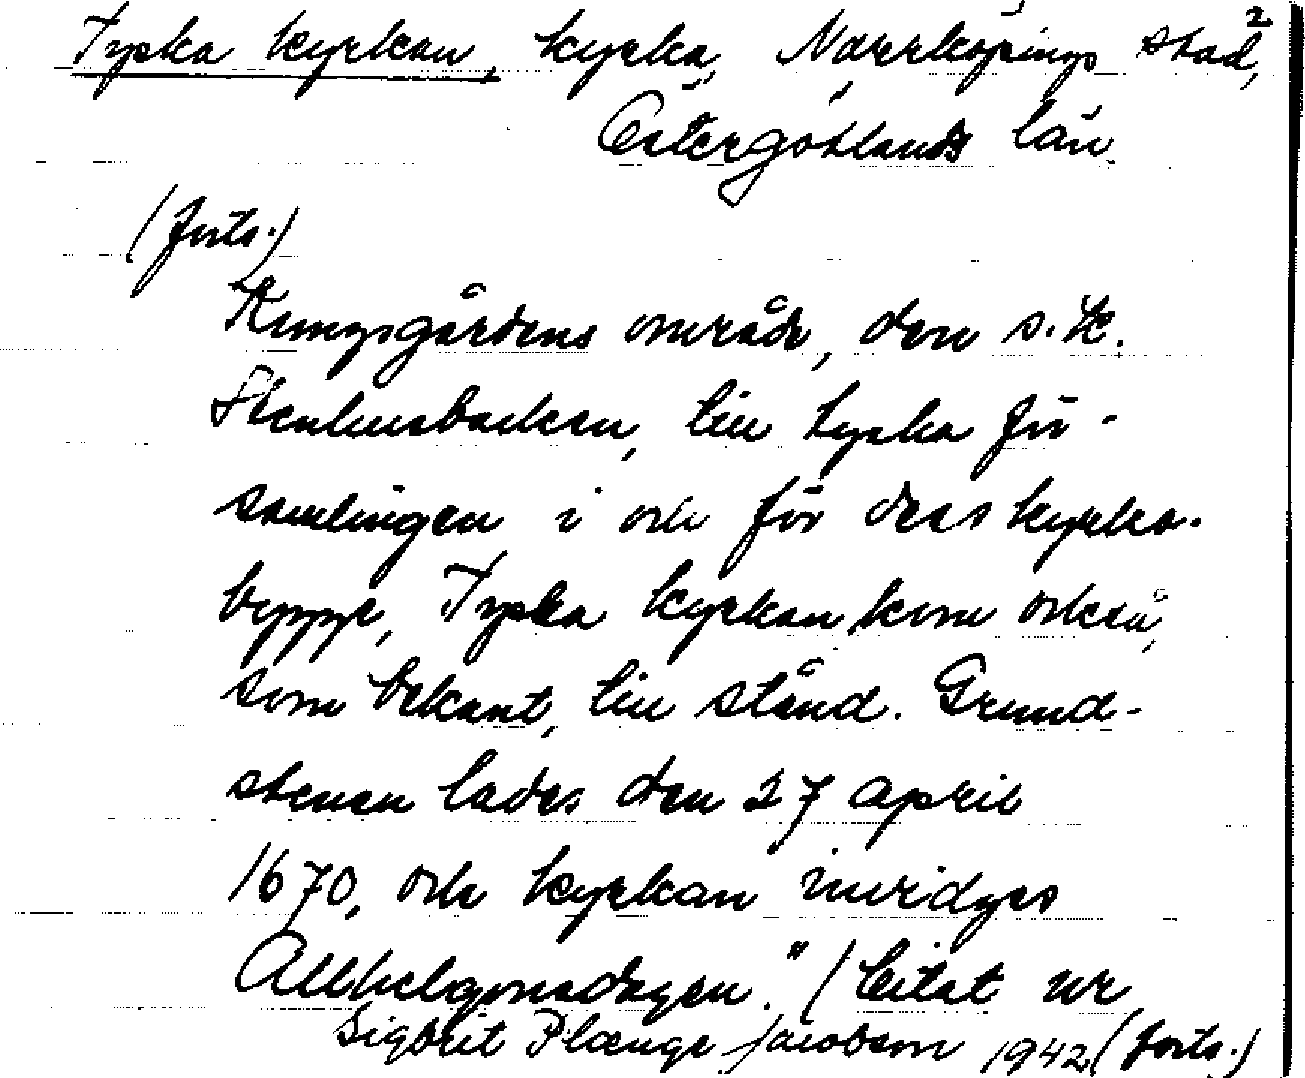 2
Tyska kyrkan, kyrka, Norrköpings stad,
Östergötlands län.
(forts.)
Kungsgårdens område, den s.k.
Stenhusbacken, till tyska för-
samlingen i och för dess kyrko-
bygge, Tyska kyrkan kom också,
som bekant, till stånd. Grund-
stenen lades den 27 april
1670, och kyrkan invigdes
Allhelgonadagen." (Citat ur
Sigbrit Plænge Jacobson 1942. (forts.)